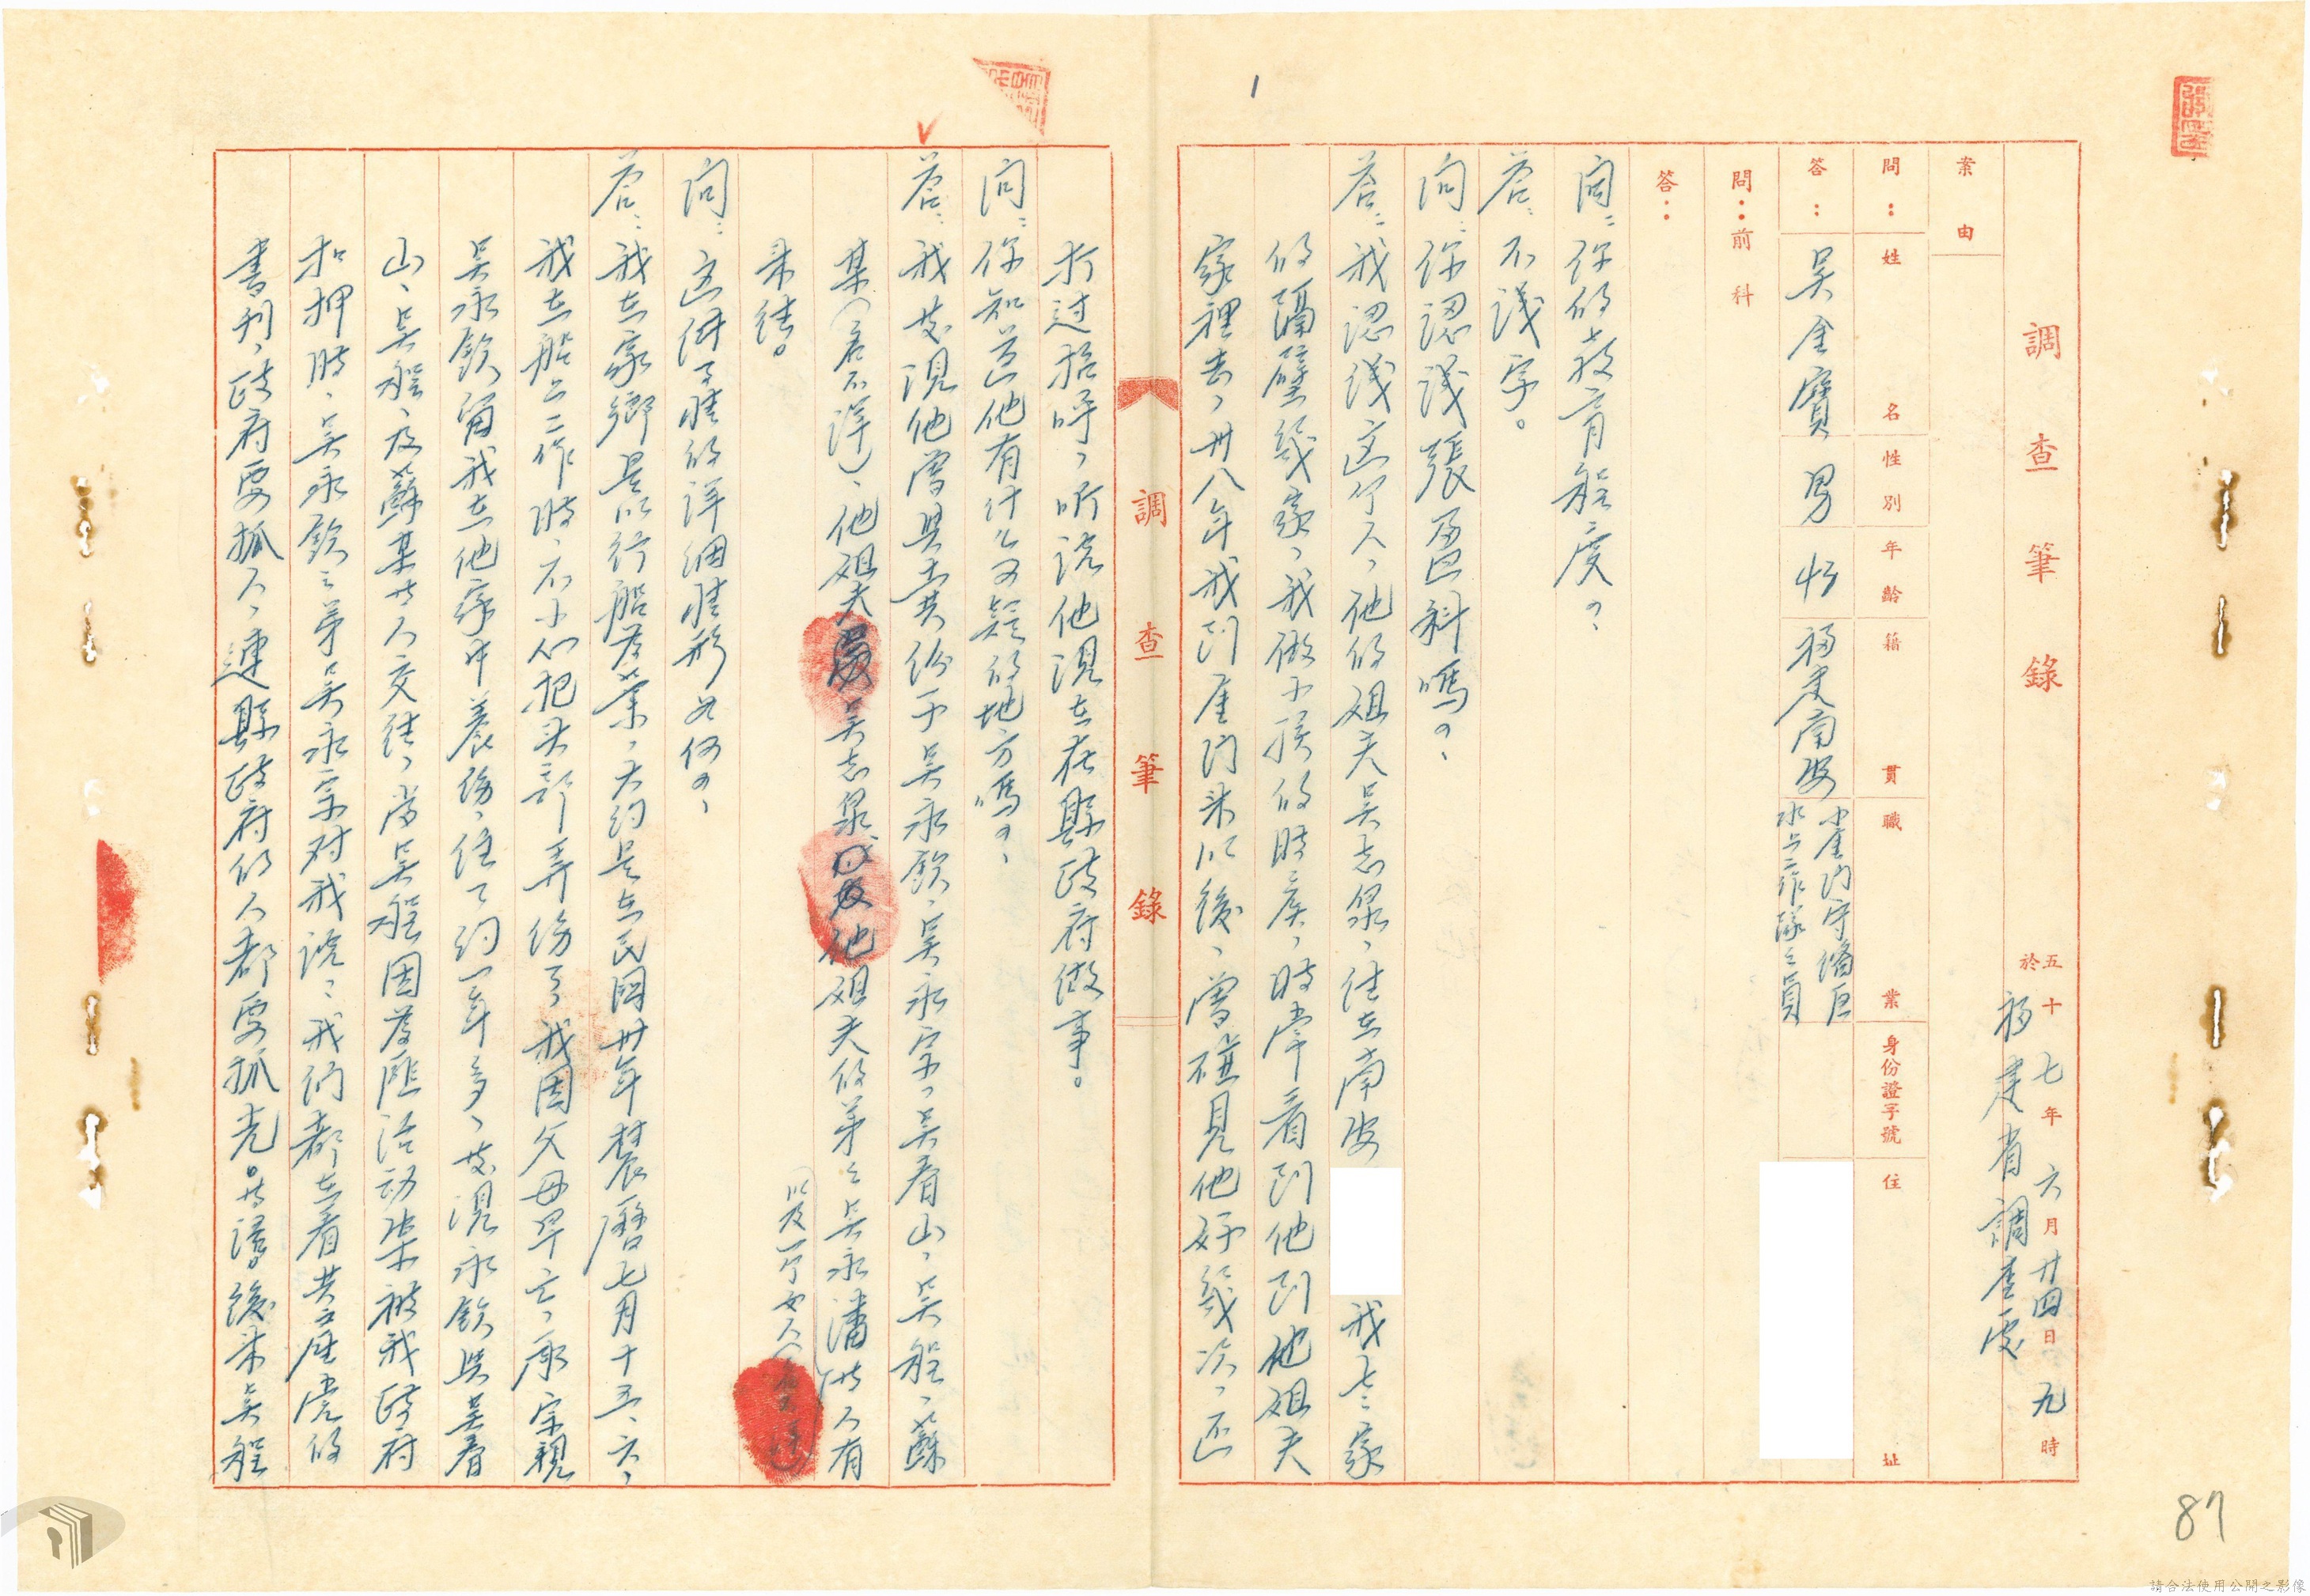 調查筆錄
五十七年六月廿四日九時
於福建省調查處
案由
問：姓名 性別 年齡 籍貫 職業 身份證字號 住址
答：吳金寶 男 45 福建南安 小金門守備區
水上工作隊隊員
問：前科
答：
問：你的教育程度？
答：不識字。
問：你認識張盈科嗎？
答：我認識這個人，他的姐夫吳志泉，住在南安 我七家
的隔壁幾家，我做小孩的時候，時常看到他到他姐夫
家裡去，卅八年我到金門來以後，曾碰見他好幾次，還
1
調查筆錄
打過招呼，听說他現在在縣政府做事。
問：你知道他有什么可疑的地方嗎？
答：我發現他曾與共份子吳永欽、吳永宗、吳春山、吳程、蘇
某（名不詳）、他姐夫吳志泉 他姐夫的弟弟吳永潘等人有
以及一个女人
來往。
問：這件事情的詳細情形如何？
答：我在家鄉是以行船為業，大約是在民國卅年農曆七月十五、六，
我在船上工作時，不小心把头部弄傷了，我因父母早亡，承宗親
吳永欽留我在他家中養傷，住了約一年多，發現永欽與吳春
山、吳程、及蘇某等人交往，當吳程因為匪活動案被我政府
扣押時，吳永欽之弟吳永宗对我說：我們都在看共產党的
書刊，政府要抓人，連縣政府的人都要抓光。等語。後來吳程
87
請合法使用公開之影像